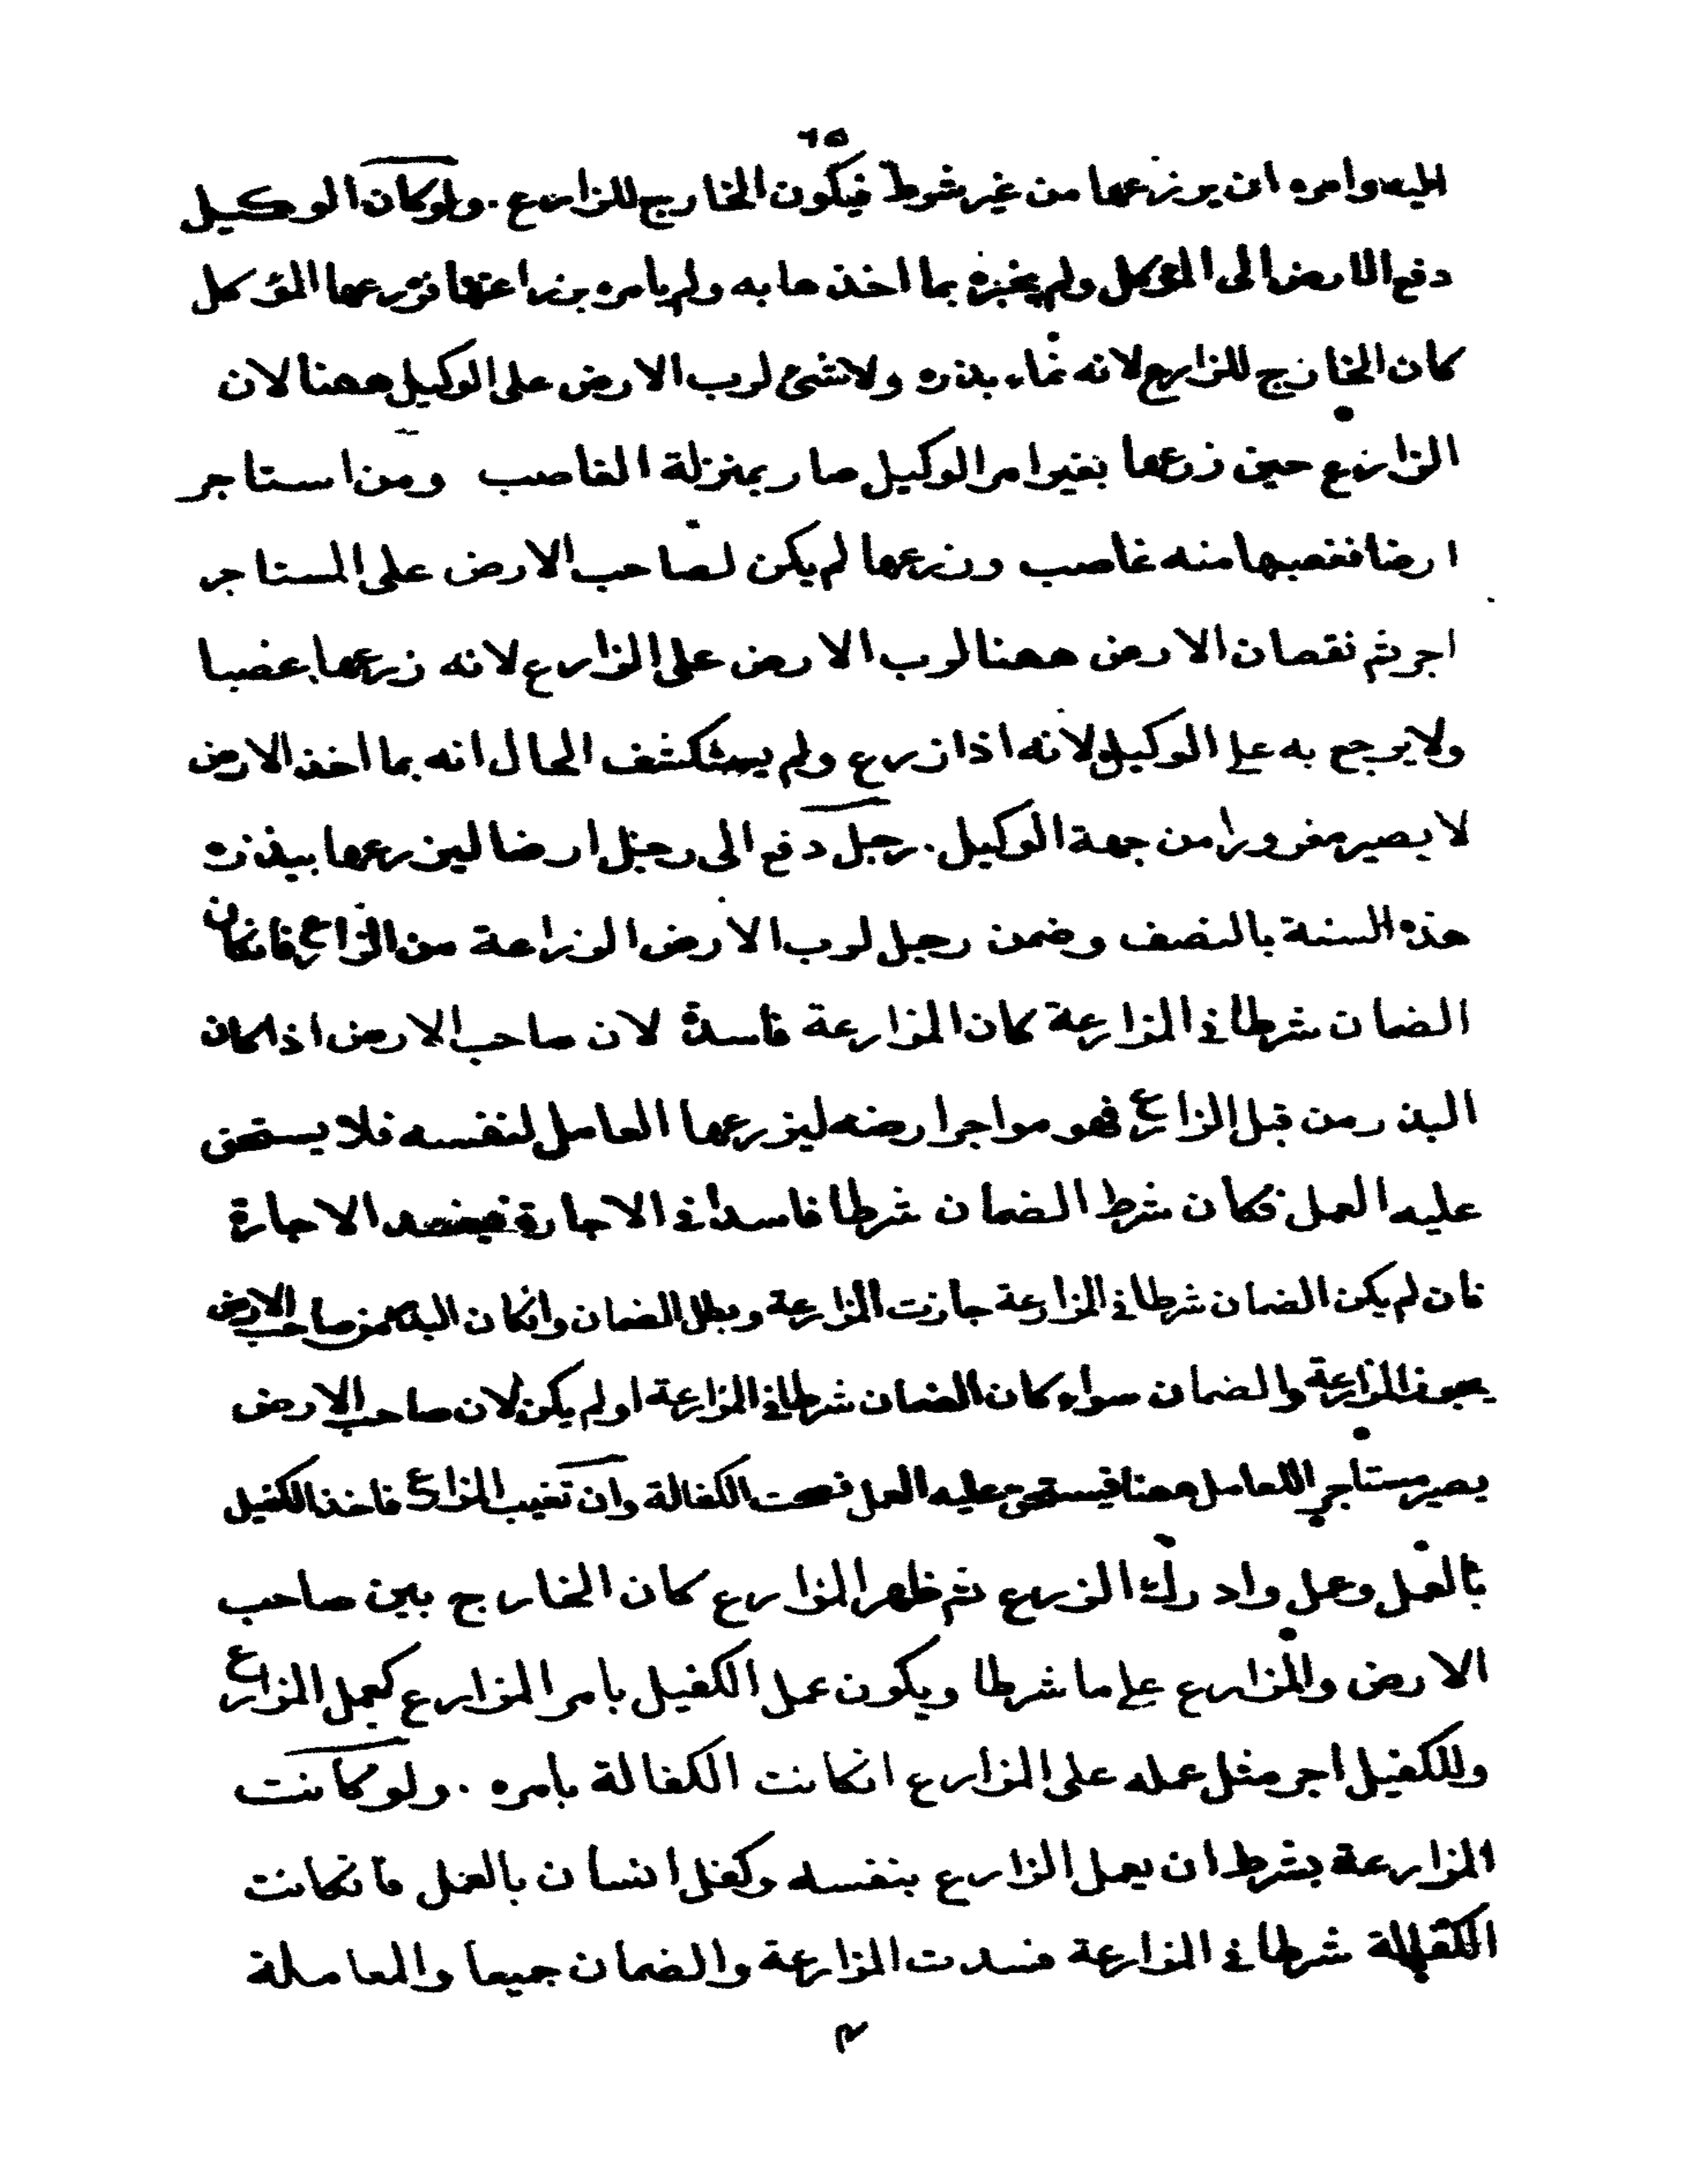 ٦٥
اليه وامره ان يزرعها من غير شرط فيكون الخارج للزارع . ولو كان الوكيل
دفع الارض الى المؤكل ولم يخبره بما اخذها به ولم يامره بزراعتها فزرعها المؤكل
كان الخارج للزارع لانه نماء بذره ولا شئ لرب الارض على الوكيل ههنا لان
الزارع حين زرعها بغير امر الوكيل صار بمنزلة الغاصب ومن استاجر
ارضا فغصبها منه غاصب وزرعها لم يكن لصاحب الارض على المستاجر
اجر ثم نقصان الارض ههنا لرب الارض على الزارع لانه زرعها غصبا
ولا يرجع به على الوكيل لانه اذا زرع ولم يستكشف الحال انه بما اخذ الارض
لا يصير مغرورا من جهة الوكيل . رجل دفع الى رجل ارضا ليزرعها ببذره
هذه السنة بالنصف وضمن رجل لرب الارض الزراعة من الزارع فانكان
الضمان شرطا في المزارعة كان المزارعة فاسدة لان صاحب الارض اذا كان
البذر من قبل الزارع فهو مواجر ارضه ليزرعها العامل لنفسه فلا يستحق
عليه العمل فكان شرط الضمان شرطا فاسدا في الاجارة فيفسد الاجارة
فان لم يكن الضمان شرطا في المزارعة جازت المزارعة وبطل الضمان وانكان البذر من صاحب الارض
يجوز المزارعة والضمان سواء كان الضمان شرطا في المزارعة او لم يكن لان صاحب الارض
يصير مستاجرا للعامل ههنا فيستحق عليه العمل فصحت الكفالة وان تغيب المزارع فاخذ الكفيل
بالعمل وعمل وادرك الزرع ثم ظهر المزارع كان الخارج بين صاحب
الارض والمزارع على ما شرطا ويكون عمل الكفيل بامر المزارع كعمل المزارع
وللكفيل اجر مثل عمله على المزارع انكانت الكفالة بامره . ولو كانت
المزارعة بشرط ان يعمل الزارع بنفسه وكفل انسان بالعمل فانكانت
الكفالة شرطا في المزارعة فسدت المزارعة والضمان جميعا والمعاملة